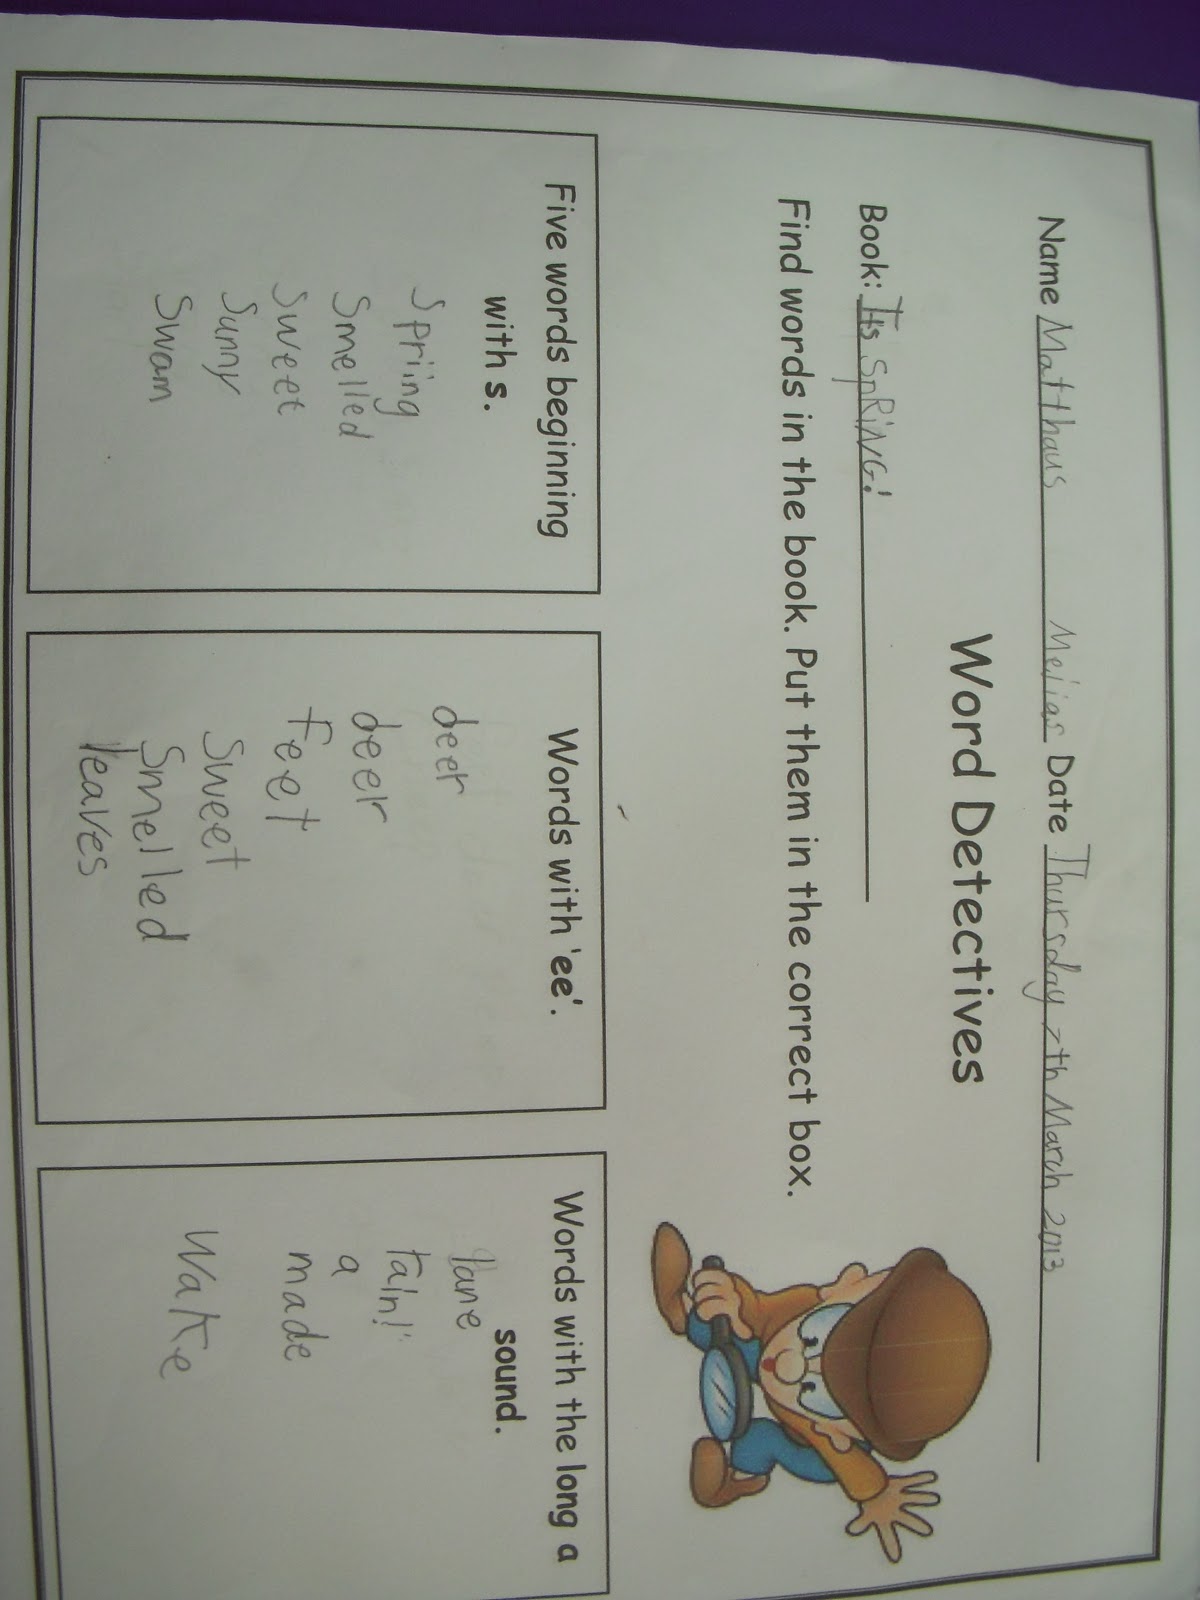 Name Matthaus Mejias Date Thursday 7th March 2013
Word Detectives
Book: Its SpRiNG!
Find words in the book. Put them in the correct box.
Five words beginning
with s.
Spring
Smelled
Sweet
Sunny
Swam
Words with 'ee'.
deer
deer
feet
Sweet
Smelled
leaves
Words with the long a
sound.
lane
a
made
Wake